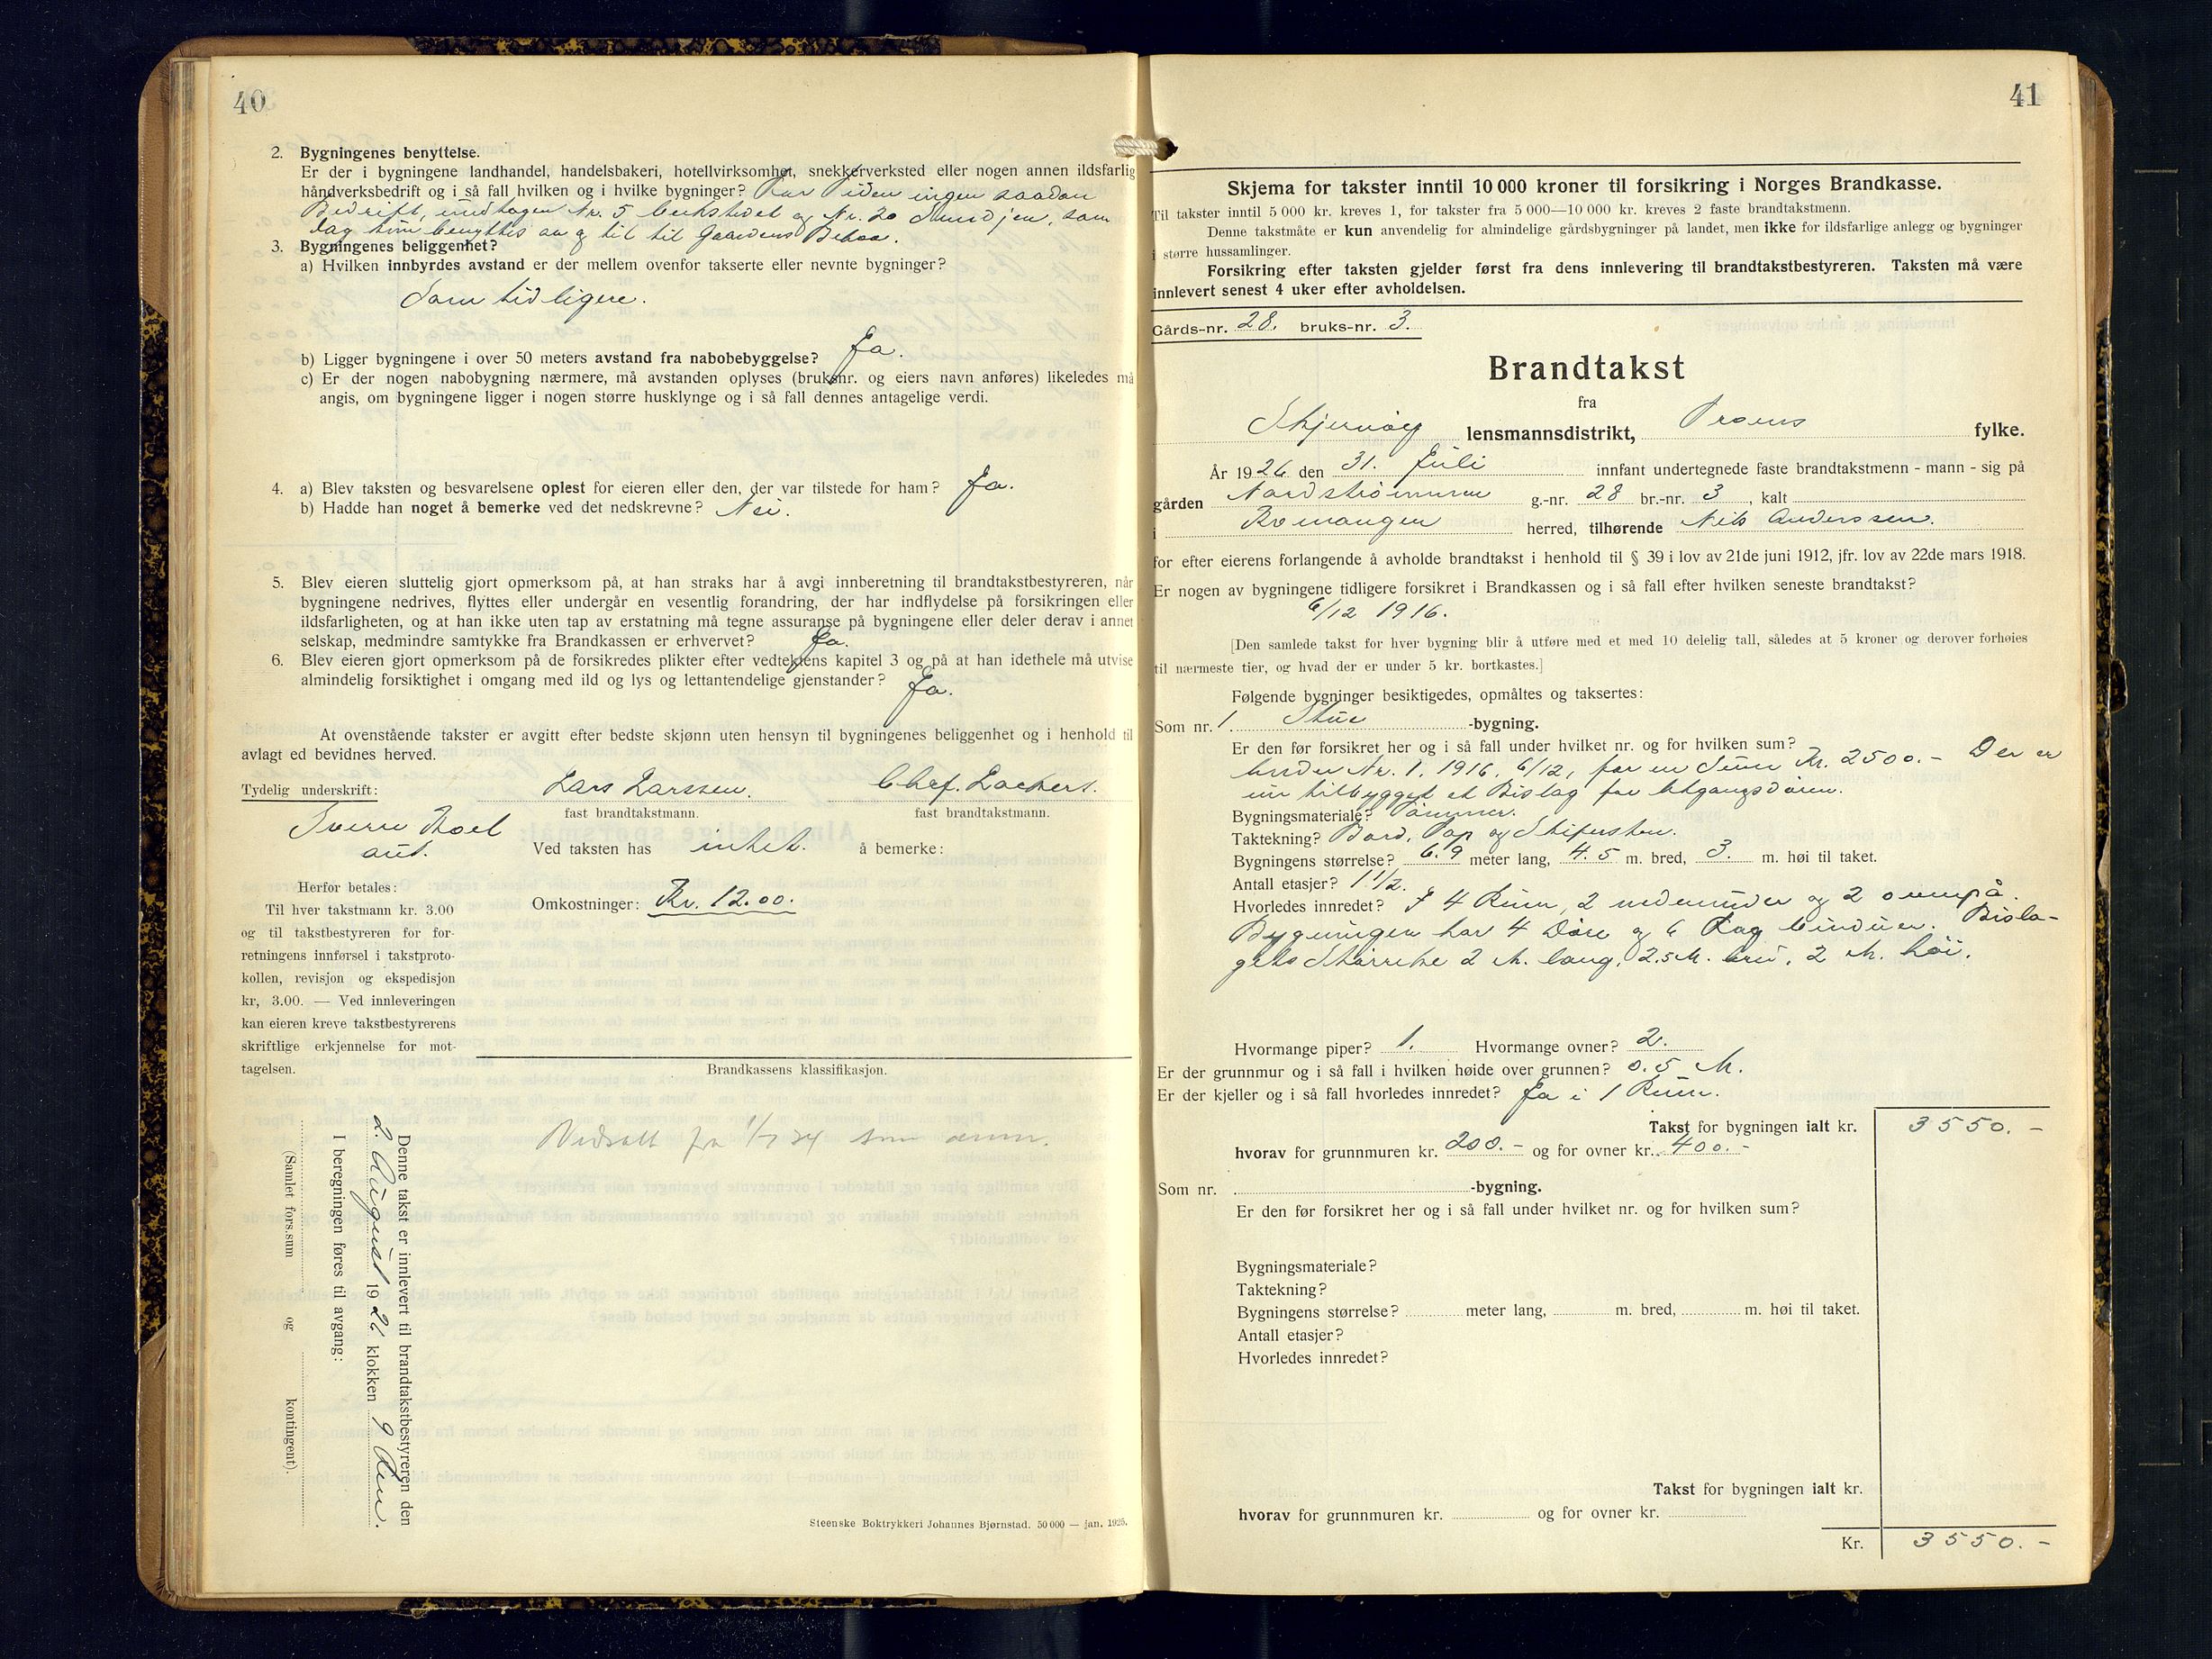 40
2. Bygningenes benyttelse.
Er der i bygningene landhandel, handelsbakeri, hotellvirksomhet, snekkerverksted eller nogen annen ildsfarlig
håndverksbedrift og i så fall hvilken og i hvilke bygninger? For Tiden ingen saadan
Bedrift, undtagen Nr. 5 og Nr. 20 som
til Gaardens Behov.
3. Bygningenes beliggenhet?
a) Hvilken innbyrdes avstand er der mellem ovenfor takserte eller nevnte bygninger?
Som tidligere.
b) Ligger bygningene i over 50 meters avstand fra nabobebyggelse? Ja.
c) Er der nogen nabobygning nærmere, må avstanden oplyses (bruksnr. og eiers navn anføres) likeledes må
angis, om bygningene ligger i nogen større husklynge og i så fall dennes antagelige verdi.
4. a) Blev taksten og besvarelsene oplest for eieren eller den, der var tilstede for ham? Ja.
b) Hadde han noget å bemerke ved det nedskrevne? Nei.
5. Blev eieren sluttelig gjort opmerksom på, at han straks har å avgi innberetning til brandtakstbestyreren, når
bygningene nedrives, flyttes eller undergår en vesentlig forandring, der har indflydelse på forsikringen eller
ildsfarligheten, og at han ikke uten tap av erstatning må tegne assuranse på bygningene eller deler derav i annet
selskap, medmindre samtykke fra Brandkassen er erhvervet? Ja.
6. Blev eieren gjort opmerksom på de forsikredes plikter efter vedtektens kapitel 3 og på at han idethele må utvise
almindelig forsiktighet i omgang med ild og lys og lettantendelige gjenstander? Ja.
At ovenstående takster er avgitt efter bedste skjønn uten hensyn til bygningenes beliggenhet og i henhold til
avlagt ed bevidnes herved.
Tydelig underskrift: Lars Larssen. Chrf. Lockert.
fast brandtakstmann. fast brandtakstmann.
Sverre Roel
aut.
Ved taksten has intet. å bemerke:
Herfor betales:
Til hver takstmann kr. 3.00
og til takstbestyreren for for-
retningens innførsel i takstproto-
kollen, revisjon og ekspedisjon
kr, 3.00. — Ved innleveringen
kan eieren kreve takstbestyrerens
skriftlige erkjennelse for mot-
tagelsen.
Omkostninger: Kr. 12.00.
Brandkassens klassifikasjon.
Nedsatt fra 1/7 34 som
Denne takst er innlevert til brandtakstbestyreren den
2. August 1926 klokken 9 Em.
I beregningen føres til avgang:
(Samlet fors.sum og kontingent).
Steenske Boktrykkeri Johannes Bjørnstad. 50 000 — jan. 1925.
41
Skjema for takster inntil 10 000 kroner til forsikring i Norges Brandkasse.
Til takster inntil 5 000 kr. kreves 1, for takster fra 5 000—10 000 kr. kreves 2 faste brandtakstmenn.
Denne takstmåte er kun anvendelig for almindelige gårdsbygninger på landet, men ikke for ildsfarlige anlegg og bygninger
i større hussamlinger.
Forsikring efter taksten gjelder først fra dens innlevering til brandtakstbestyreren. Taksten må være
innlevert senest 4 uker efter avholdelsen.
Gårds-nr. 28. bruks-nr. 3.
Brandtakst
fra
Skjervøy lensmannsdistrikt, Troms fylke.
År 1926 den 31. Juli innfant undertegnede faste brandtakstmenn - mann - sig på
gården Nordstrømmen g.-nr. 28 br.-nr. 3, kalt
i Kvænangen herred, tilhørende Nils Anderssen.
for efter eierens forlangende å avholde brandtakst i henhold til § 39 i lov av 21de juni 1912, jfr. lov av 22de mars 1918.
Er nogen av bygningene tidligere forsikret i Brandkassen og i så fall efter hvilken seneste brandtakst?
6/12 1916.
[Den samlede takst for hver bygning blir å utføre med et med 10 delelig tall, således at 5 kroner og derover forhøies
til nærmeste tier, og hvad der er under 5 kr. bortkastes.]
Følgende bygninger besiktigedes, opmåltes og taksertes:
Som nr. 1. Stue -bygning.
Er den før forsikret her og i så fall under hvilket nr. og for hvilken sum?
Under Nr. 1. 1916, 6/12, for en Sum Kr. 2500.- Der er
nu tilbygget et Bislag for Utgangsdøren.
Bygningsmateriale? Tømmer.
Taktekning? Bord, Pap og Skifersten.
Bygningens størrelse? 6.9 meter lang, 4.5 m. bred, 3. m. høi til taket.
Antall etasjer? 1 1/2.
Hvorledes innredet? I 4 Rum, 2 nedenunder og 2 ovenpå.
Bygningen har 4 Døre og 6 Fag Vinduer. Bisla-
gets Størrelse 2 M. lang, 2.5 M. bred, 2 M. høi.
Hvormange piper? 1. Hvormange ovner? 2.
Er der grunnmur og i så fall i hvilken høide over grunnen? 0.5 M.
Er der kjeller og i så fall hvorledes innredet? Ja i 1 Rum.
Takst for bygningen ialt kr. 3550.-
hvorav for grunnmuren kr. 200.- og for ovner kr. 400.-
Som nr. -bygning.
Er den før forsikret her og i så fall under hvilket nr. og for hvilken sum?
Bygningsmateriale?
Taktekning?
Bygningens størrelse? meter lang, m. bred, m. høi til taket.
Antall etasjer?
Hvorledes innredet?
Takst for bygningen ialt kr.
hvorav for grunnmuren kr. og for ovner kr.
Kr. 3550.-